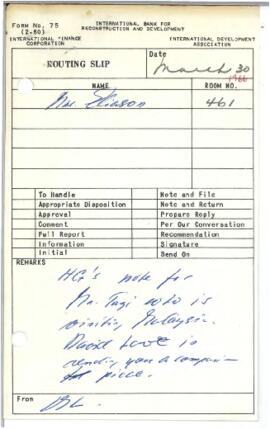 FORM No. 75
(2-60)
INTERNATIONAL BANK FOR
RECONSTRUCTION AND DEVELOPMENT
INTERNATIONAL FINANCE
CORPORATION
INTERNATIONAL DEVELOPMENT
ASSOCIATION
ROUTING SLIP
Date
March 30
1966
NAME
ROOM NO.
461
To Handle
Note and File
Appropriate Disposition
Note and Return
Approval
Prepare Reply
Comment
Per Our Conversation
Full Report
Recommendation
Information
Signature
Initial
Send On
REMARKS
HG's note for
Mr. who is
visiting Malaysia.
is
sending you a
piece.
From